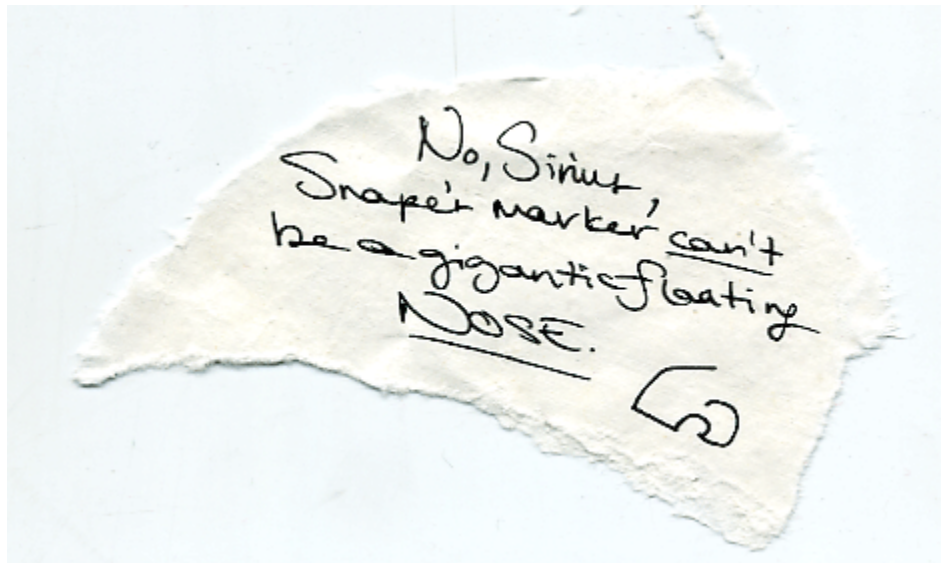 No, Sirius,
Snape's marker can't
be a gigantic floating
NOSE.